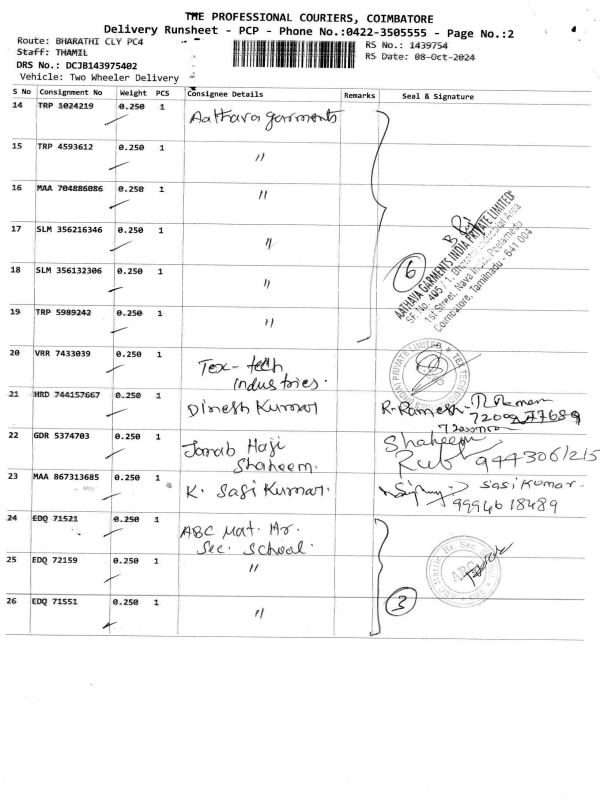 THE PROFESSIONAL COURIERS, COIMBATORE
Delivery Runsheet - PCP - Phone No.:0422-3505555 - Page No.:2
Route: BHARATHI CLY PC4
Staff: THAMIL
DRS No.: DCJB143975402
Vehicle: Two Wheeler Delivery
RS No.: 1439754
RS Date: 08-Oct-2024
S No Consignment No Weight PCS Consignee Details Remarks Seal & Signature
14 TRP 1024219 0.250 1 Aathava garments
15 TRP 4593612 0.250 1 "
16 MAA 704886086 0.250 1 "
17 SLM 356216346 0.250 1 "
18 SLM 356132306 0.250 1 "
19 TRP 5989242 0.250 1 "
6
AATHAVA GARMENTS INDIA PRIVATE LIMITED
SF. No. 405 / 1, Industrial Area
1st Street, Nava India, Peelamedu
Coimbatore, Tamilnadu - 641 004
20 VRR 7433039 0.250 1 Tex-tech
Industries.
21 HRD 744157667 0.250 1 Dinesh Kumar R. Ramesh
22 GDR 5374703 0.250 1 Janab Haji
Shaheem. Shaheem
9443061215
23 MAA 867313685 0.250 1 K. Sasi Kumar. Sasi Kumar.
9994618489
24 EDQ 71521 0.250 1 ABC Mat. Hr.
Sec. School.
25 EDQ 72159 0.250 1 "
26 EDQ 71551 0.250 1 "
3